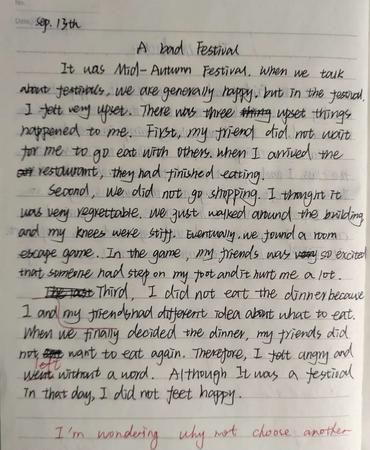 No.
Date.
Sep. 13th
A bad Festival
It was Mid-Autumn Festival. When we talk
about festivals, we are generally happy, but in the festival,
I felt very upset. There was three thing upset things
happened to me. First, my friend did not wait
for me to go eat with others. when I arrived the
restaurant, they had finished eating.
Second, we did not go shopping. I thought it
was very regrettable. we just walked around the building
and my knees were stiff. Eventually, we found a room
escape game. In the game, my friends was very so excited
that someone had step on my foot and it hurt me a lot.
The last Third, I did not eat the dinner because
I and my friends had different idea about what to eat.
When we finally decided the dinner, my friends did
not eat want to eat again. Therefore, I felt angry and
left
went without a word. Although It was a festival
in that day, I did not feel happy.
I'm wondering why not choose another